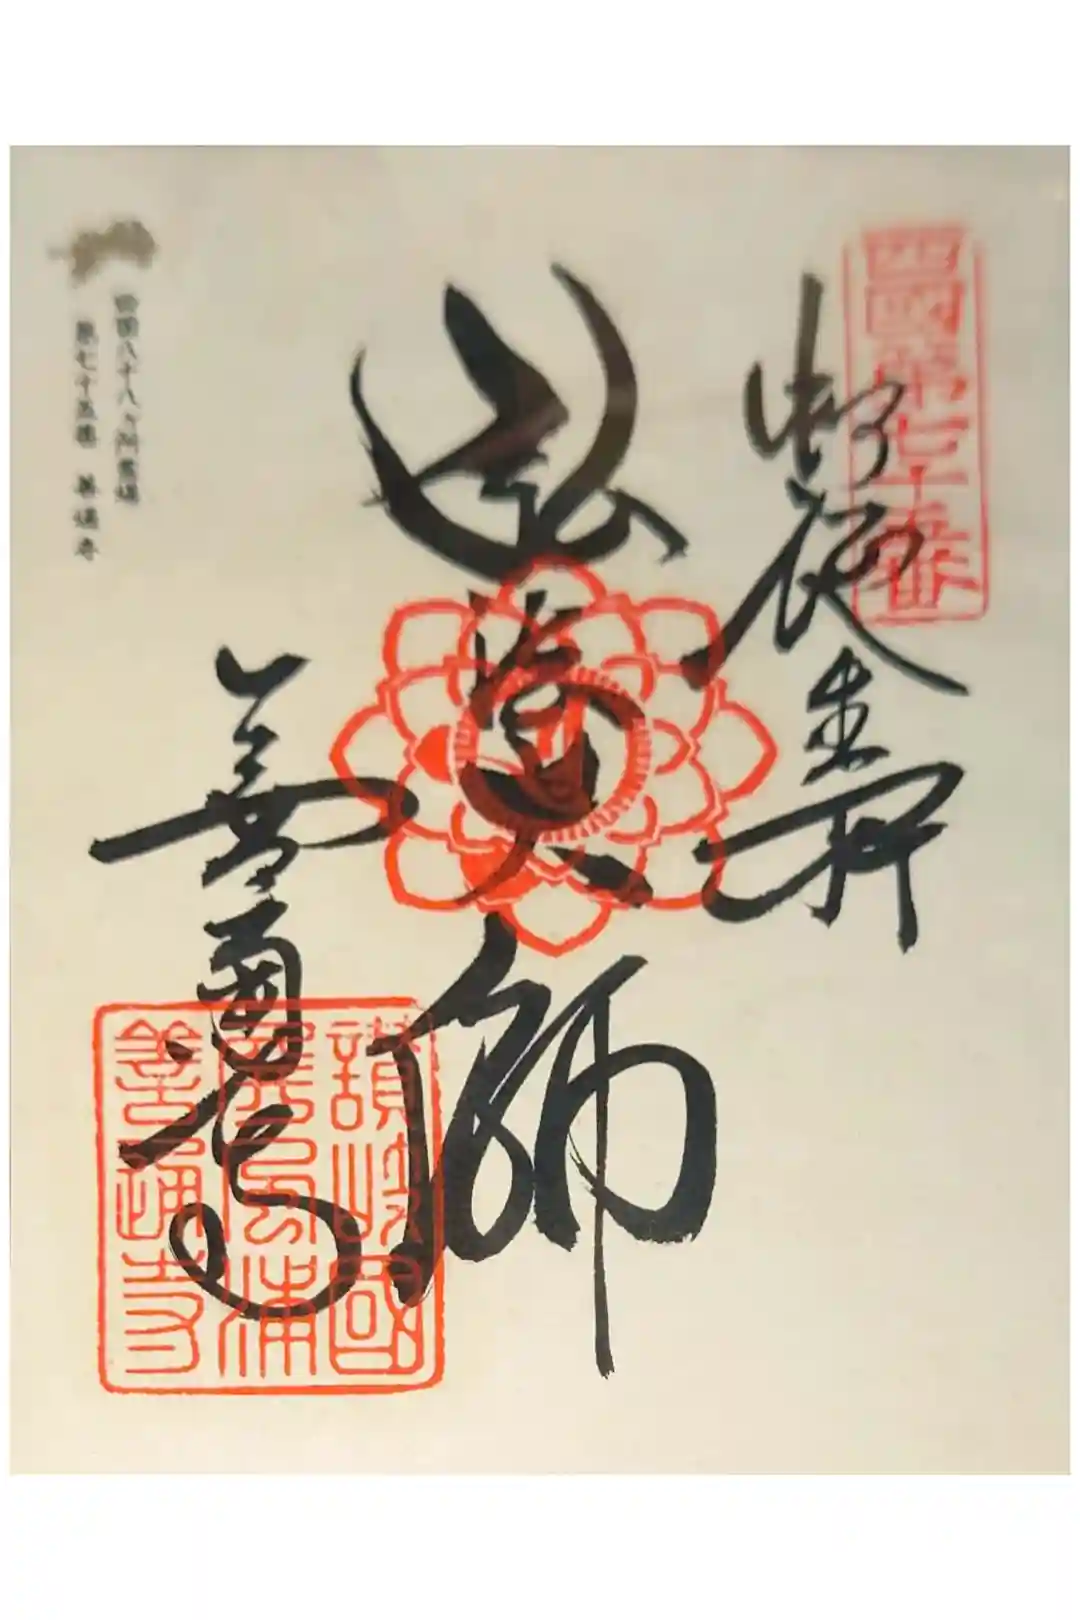 四國第七十五番
御誕生所
弘法大師
善通寺
讃岐國
屏風浦
善通寺
四国八十八ヶ所霊場
第七十五番 善通寺